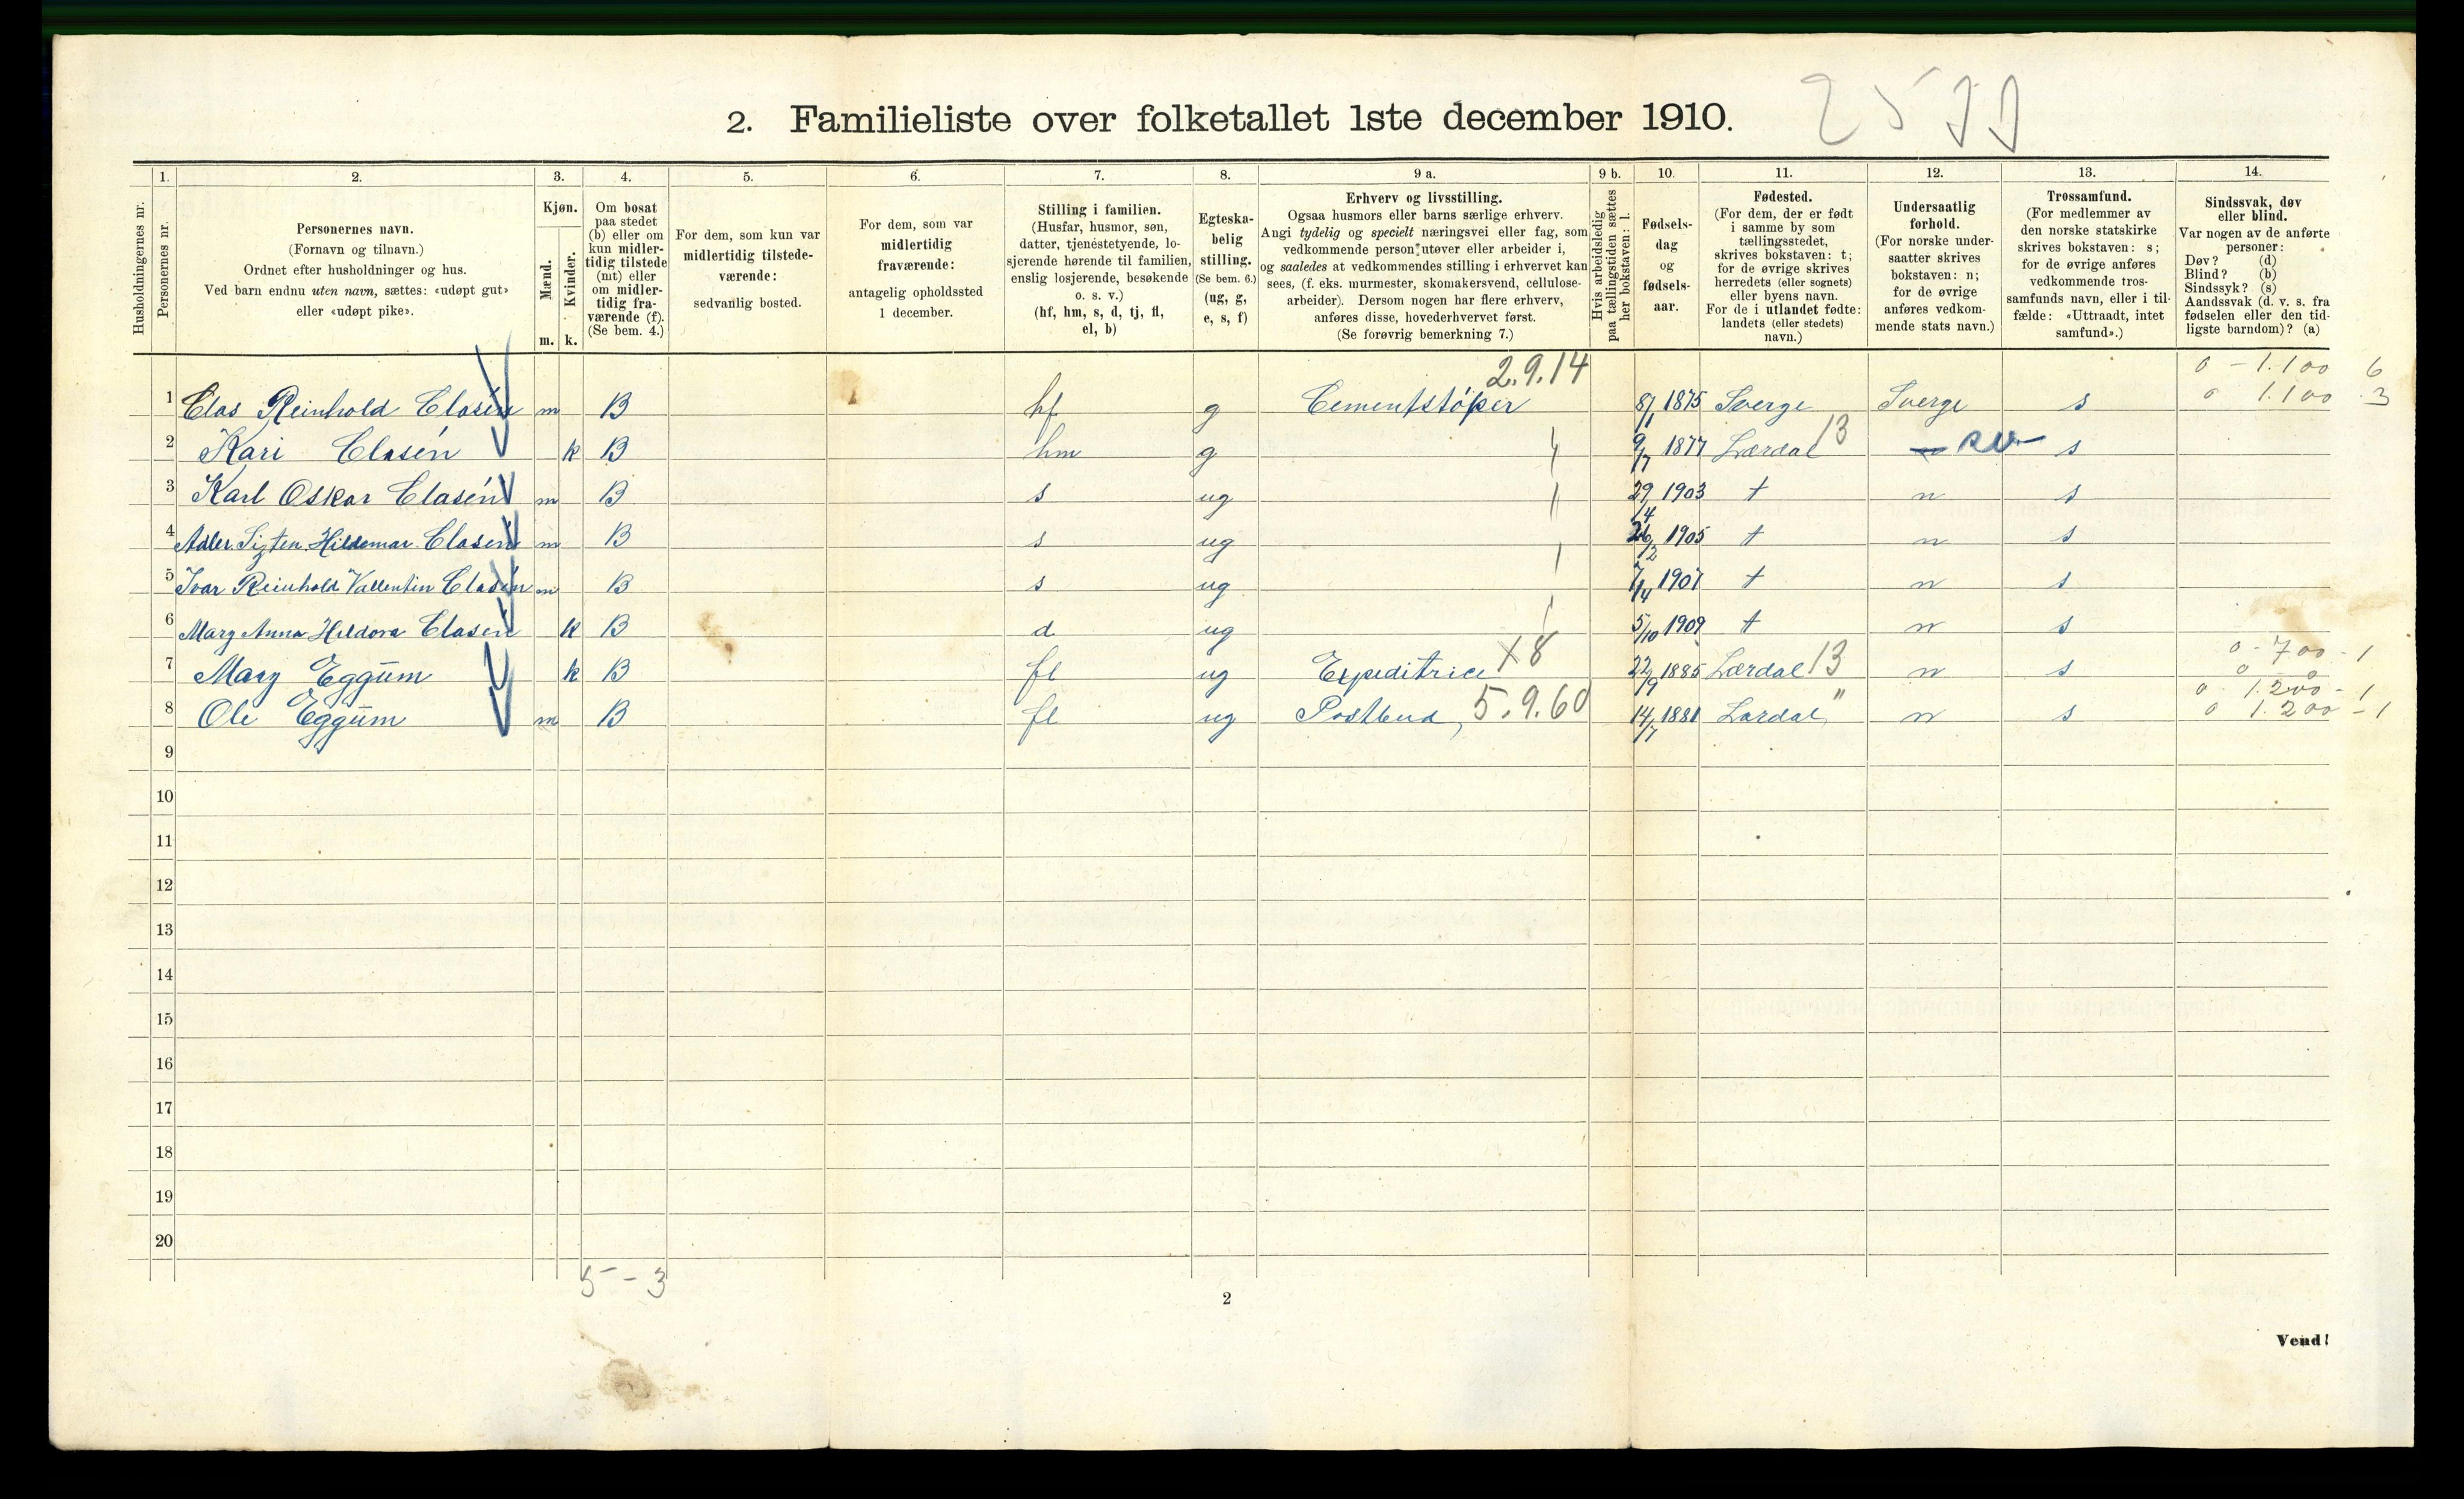 2. Familieliste over folketallet 1ste december 1910.
1. 2. 3. 4. 5. 6. 7. 8. 9 a. 9 b. 10. 11. 12. 13. 14.
Husholdningernes nr.
Personernes nr.
Personernes navn.
(Fornavn og tilnavn.)
Ordnet efter husholdninger og hus.
Ved barn endnu uten navn, sættes: «udøpt gut»
eller «udøpt pike».
Kjøn.
Mænd.
Kvinder.
m. k.
Om bosat
paa stedet
(b) eller om
kun midler-
tidig tilstede
(mt) eller
om midler-
tidig fra-
værende (f).
(Se bem. 4.)
For dem, som kun var
midlertidig tilstede-
værende:
sedvanlig bosted.
For dem, som var
midlertidig
fraværende:
antagelig opholdssted
1 december.
Stilling i familien.
(Husfar, husmor, søn,
datter, tjenestetyende, lo-
sjerende hørende til familien,
enslig losjerende, besøkende
o. s. v.)
(hf, hm, s, d, tj, fl,
el, b)
Egteska-
belig
stilling.
(Se bem. 6.)
(ug, g,
e, s, f)
Erhverv og livsstilling.
Ogsaa husmors eller barns særlige erhverv.
Angi tydelig og specielt næringsvei eller fag, som
vedkommende person utøver eller arbeider i,
og saaledes at vedkommendes stilling i erhvervet kan
sees, (f. eks. murmester, skomakersvend, cellulose-
arbeider). Dersom nogen har flere erhverv,
anføres disse, hovederhvervet først.
(Se forøvrig bemerkning 7.)
Hvis arbeidsledig
paa tællingstiden sættes
her bokstaven: l.
Fødsels-
dag
og
fødsels-
aar.
Fødested.
(For dem, der er født
i samme by som
tællingsstedet,
skrives bokstaven: t;
for de øvrige skrives
herredets (eller sognets)
eller byens navn.
For de i utlandet fødte:
landets (eller stedets)
navn.)
Undersaatlig
forhold.
(For norske under-
saatter skrives
bokstaven: n;
for de øvrige
anføres vedkom-
mende stats navn.)
Trossamfund.
(For medlemmer av
den norske statskirke
skrives bokstaven: s;
for de øvrige anføres
vedkommende tros-
samfunds navn, eller i til-
fælde: «Uttraadt, intet
samfund».)
Sindssvak, døv
eller blind.
Var nogen av de anførte
personer:
Døv? (d)
Blind? (b)
Sindssyk? (s)
Aandssvak (d. v. s. fra
fødselen eller den tid-
ligste barndom)? (a)
2.9.14 0 - 1.100 6
1 Clas Reinhold Clasén m B hf g Cementstøper 8/1 1875 Sverge Sverge s 0 1.100 3
2 Kari Clasén k B hm g 9/7 1877 Lærdal 13 s
3 Karl Oskar Clasén m B s ug 29/4 1903 t n s
4 Adler Sixten Hildemar Clasén m B s ug 26/2 1905 t n s
5 Ivar Reinhold Vallentin Clasén m B s ug 7/4 1907 t n s
6 Mary Anna Hildora Clasén k B d ug 5/10 1909 t n s
7 Mary Eggum k B fl ug Expeditrice X8 22/9 1885 Lærdal 13 n s 0 - 700 - 1
0 0
0 1.200 - 1
8 Ole Eggum m B fl ug Postbud, 5.9.60 14/7 1881 Lardal, " n s 0 1.200 - 1
9
10
11
12
13
14
15
16
17
18
19
20
5 - 3
2
Vend!